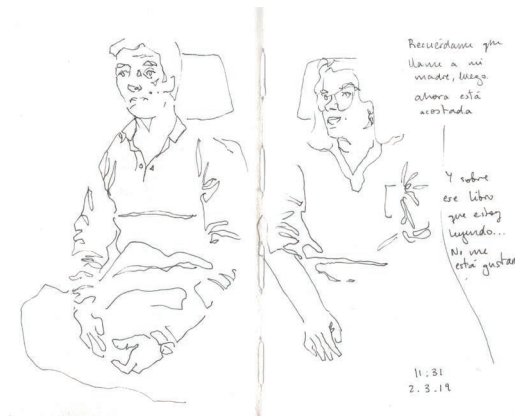 Recuérdame que
llame a mi
madre, luego.
ahora está
acostada
Y sobre
ese libro
que estoy
leyendo...
No me
está gustan
11:31
2.3.19